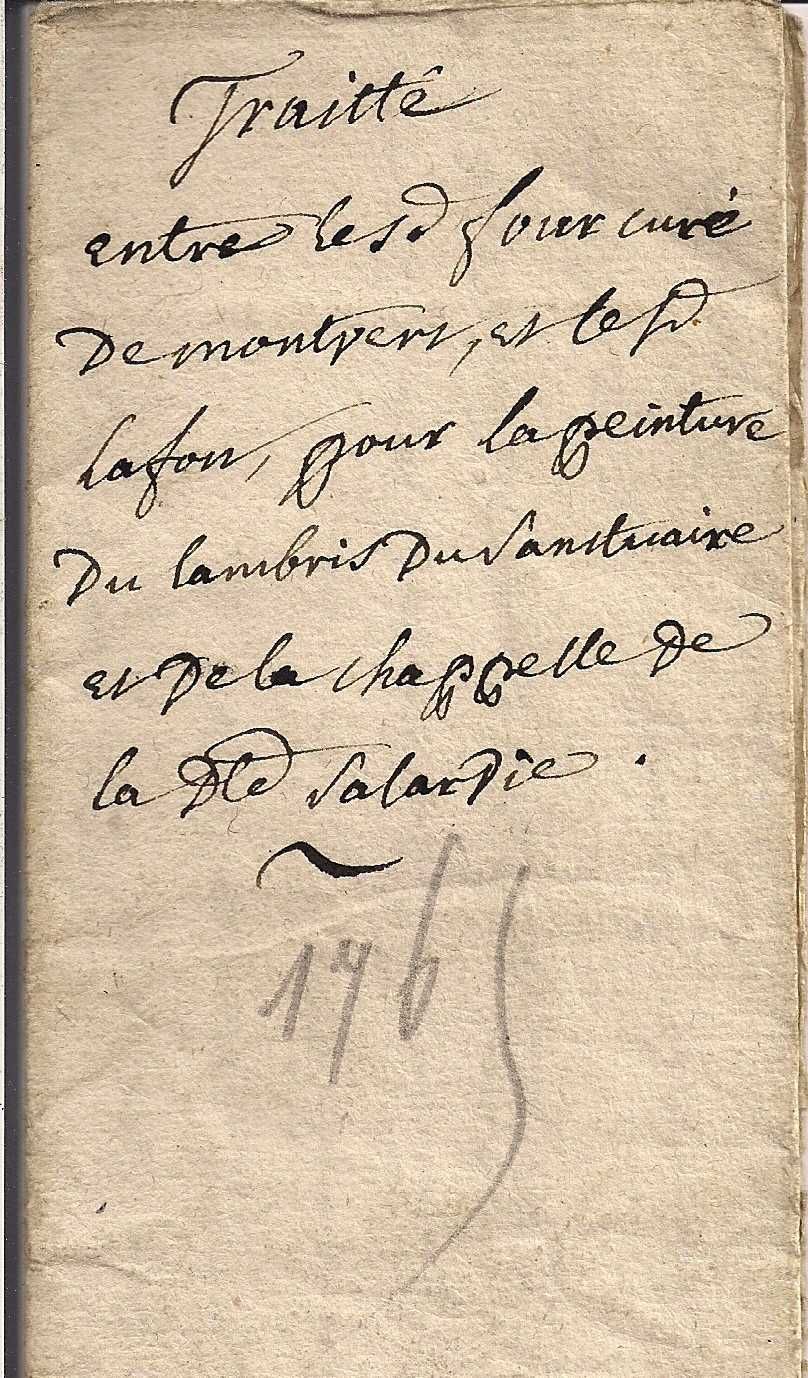 Traitté
entre le sd four curé
De montvert, et le sd
lafon, pour la peinture
Du lambris Du Sanctuaire
et De la chappelle De
la Dlle Salardie .
1765